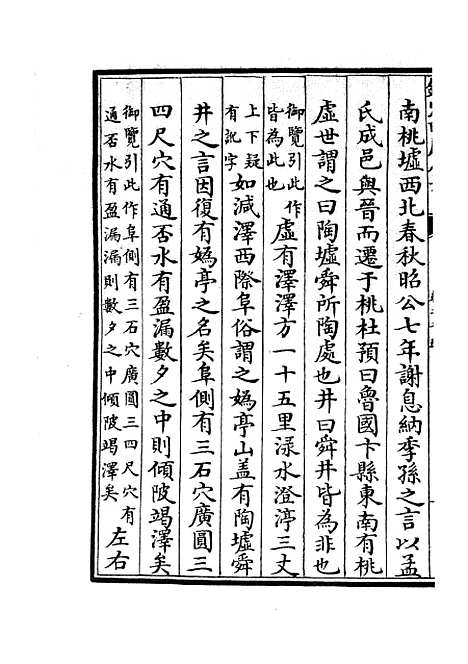 南桃墟西北春秋昭公七年謝息納季孫之言以孟
氏成邑與晉而遷于桃杜預曰魯國卞縣東南有桃
虛世謂之曰陶墟舜所陶處也井曰舜井皆為非也
御覽引此作
皆為此也
虛有澤澤方一十五里渌水澄渟三丈
上下疑
有訛字
如減澤西際阜俗謂之媯亭山盖有陶墟舜
井之言因復有媯亭之名矣阜側有三石穴廣圓三
四尺穴有通否水有盈漏漏數夕之中則傾陂竭澤矣
御覽引此作阜側有三石穴廣圓三四尺穴有
通否水有盈漏漏則數夕之中傾陂竭澤矣
左右